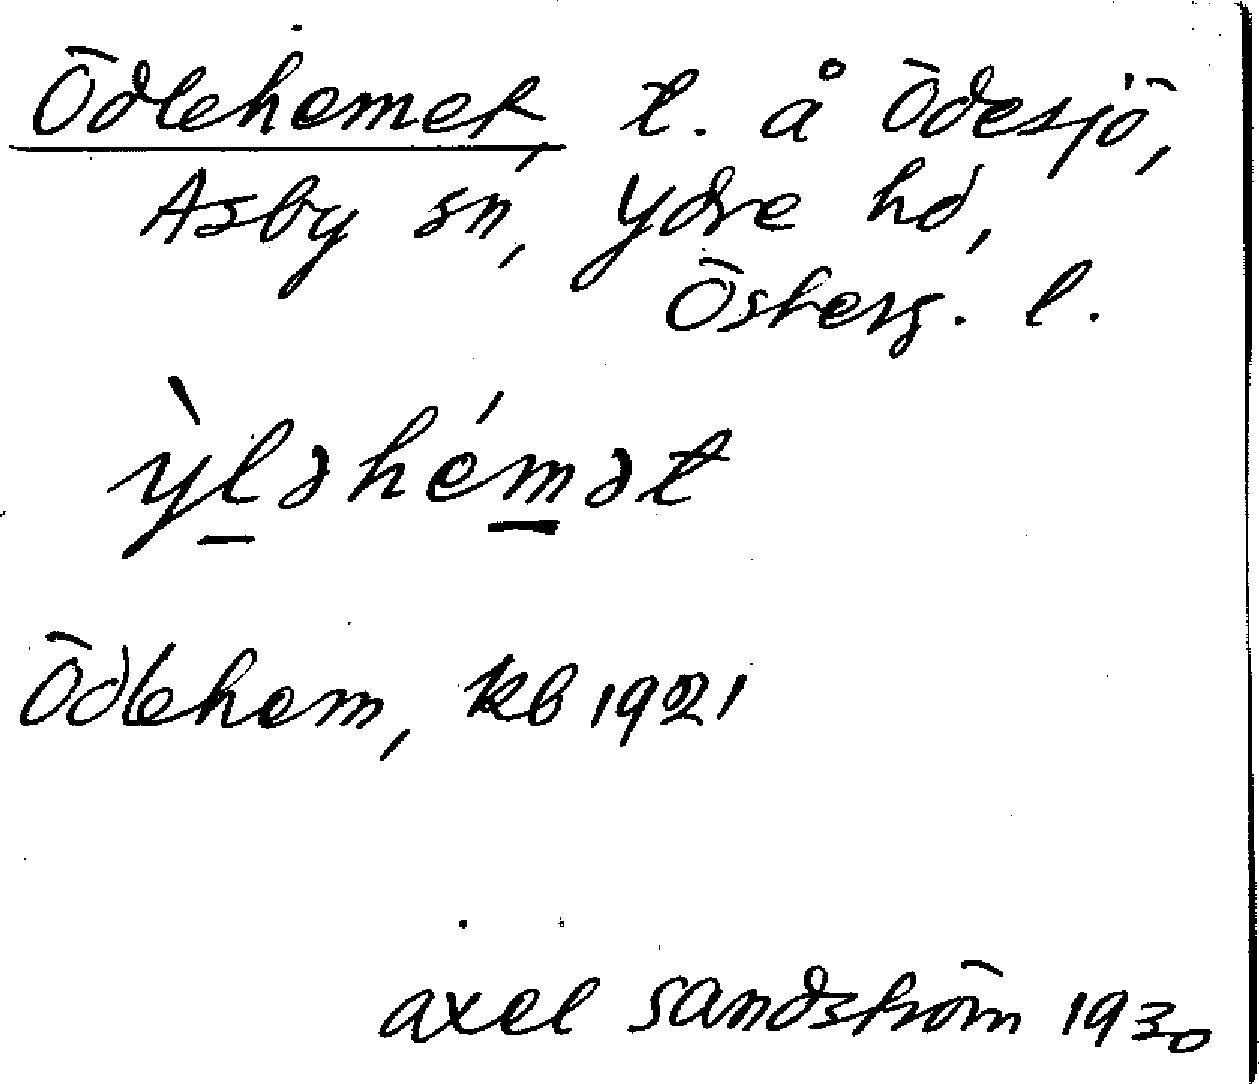 Ödlehemet, t. å Ödesjö,
Asby sn, Ydre hd,
Österg. l.
ỳləhémət
Ödlehem, kb 1921
Axel Sandström 1930